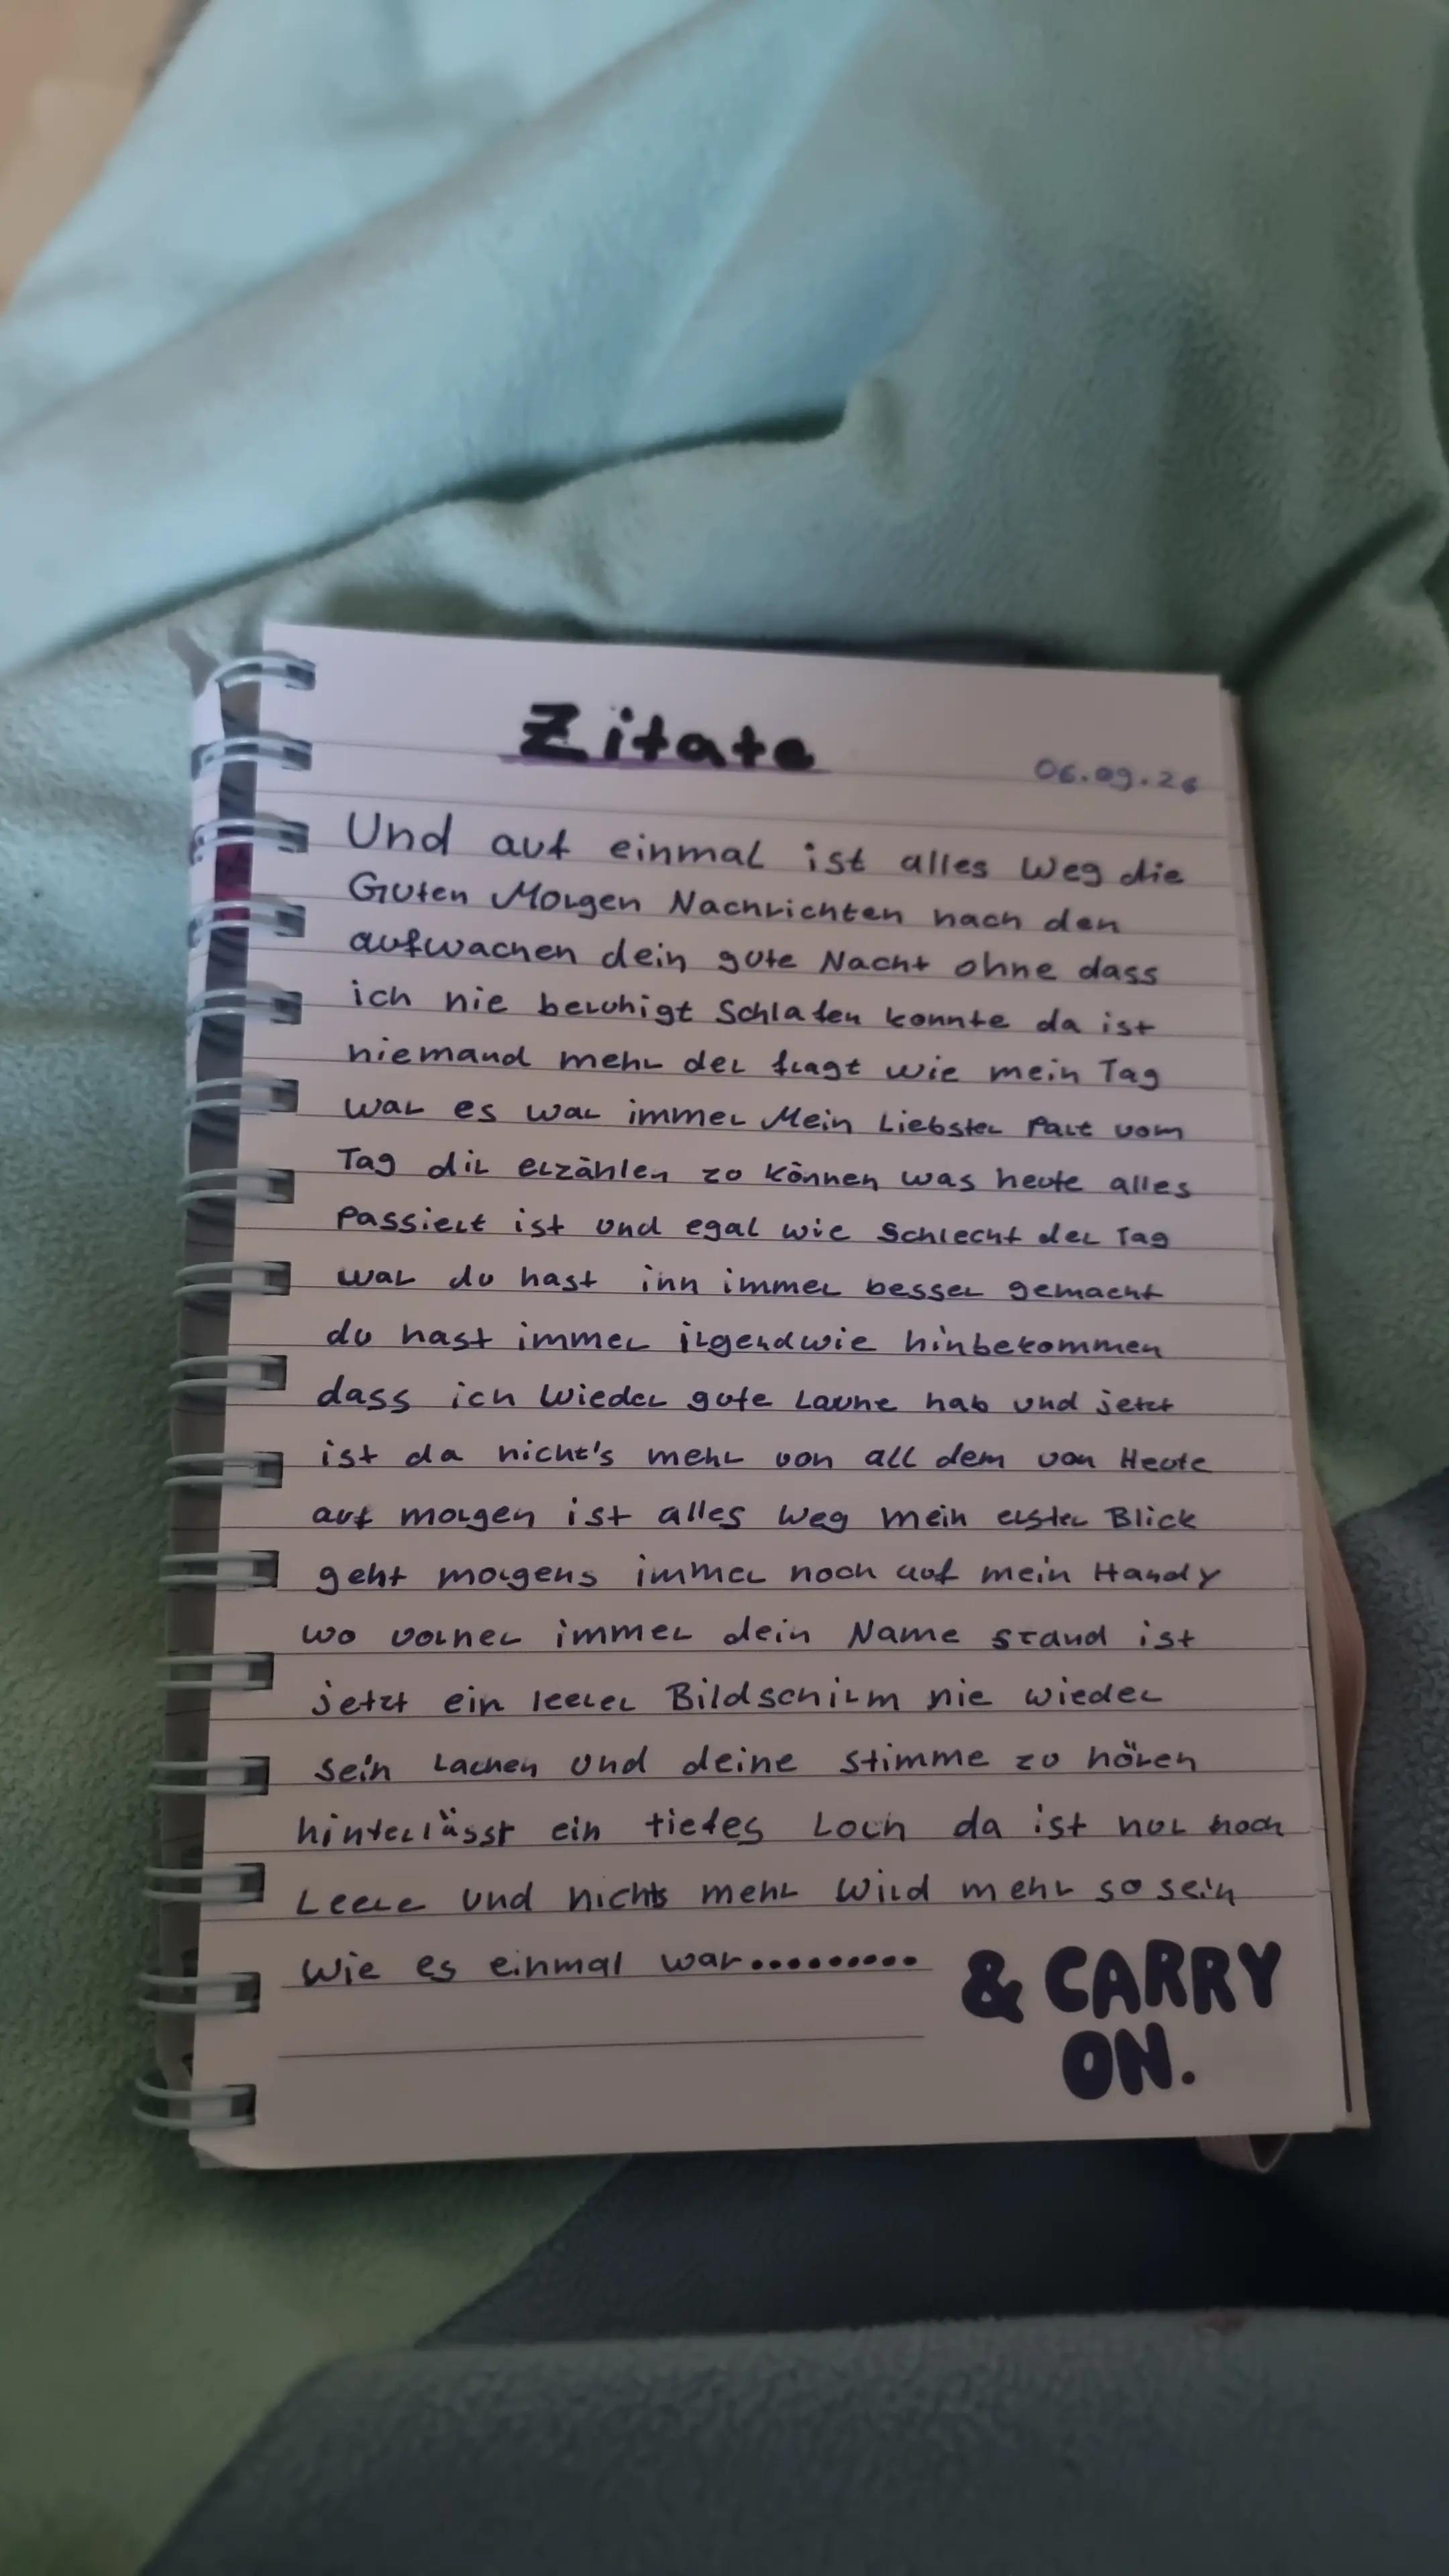 Zitate
06.09.26
Und auf einmal ist alles Weg die
Guten Morgen Nachrichten nach den
aufwachen dein gute Nacht ohne dass
ich nie beruhigt Schlafen konnte da ist
niemand mehr der fragt wie mein Tag
war es war immer Mein Liebster Part vom
Tag dir erzählen zu können was heute alles
Passiert ist und egal wie Schlecht der Tag
war du hast inn immer besser gemacht
du hast immer irgendwie hinbekommen
dass ich Wieder gute Laune hab und jetzt
ist da nicht's mehr von all dem von Heute
auf morgen ist alles Weg mein erster Blick
geht morgens immer noch auf mein Handy
wo vorner immer dein Name stand ist
jetzt ein leerer Bildschirm nie wieder
sein Lachen und deine Stimme zu hören
hinterlässt ein tiefes Loch da ist nur noch
Leere und nichts mehr Wird mehr so sein
Wie es einmal war.........
& CARRY
ON.